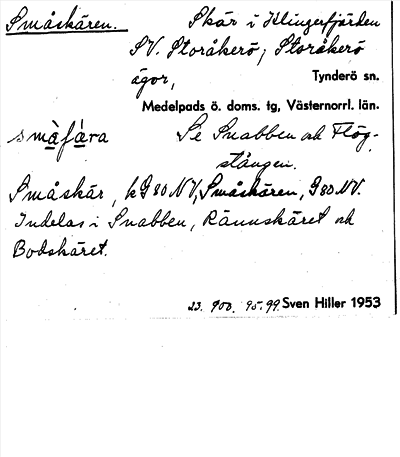 Småskären. Skär i Klingerfjärden
SV. Storåkerö; Storåkerö
ägor, Tynderö sn.
Medelpads ö. doms. tg, Västernorrl. län.
smàfára Se Snabben och Flög-
stången.
Småskär, kG 80 NV, Småskären, G 80 NV.
Indelas i Snabben, Rännskäret och
Bodskäret.
23. 900. 95.99. Sven Hiller 1953